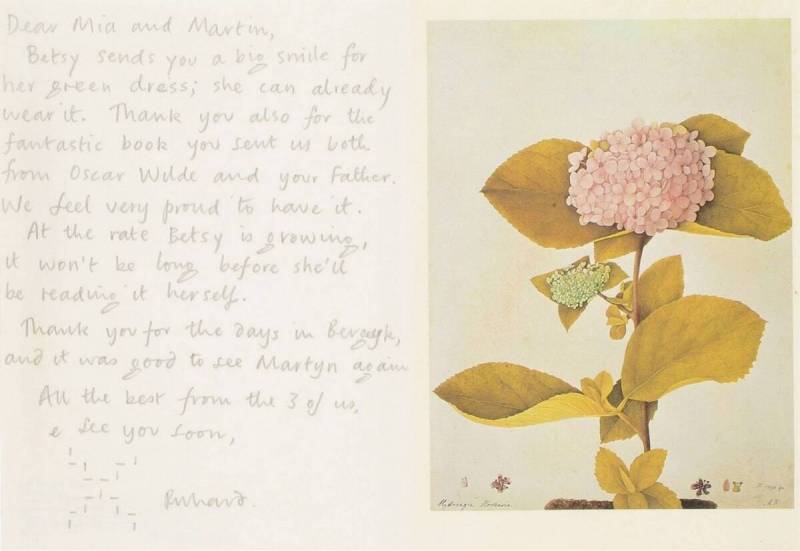 Dear Mia and Martin,
Betsy sends you a big smile for
her green dress; she can already
wear it. Thank you also for the
fantastic book you sent us both
from Oscar Wilde and your Father.
We feel very proud to have it.
At the rate Betsy is growing,
it won't be long before she'll
be reading it herself.
Thank you for the days in
and it was good to see Martyn again
All the best from the 3 of us,
& see you soon,
Richard.